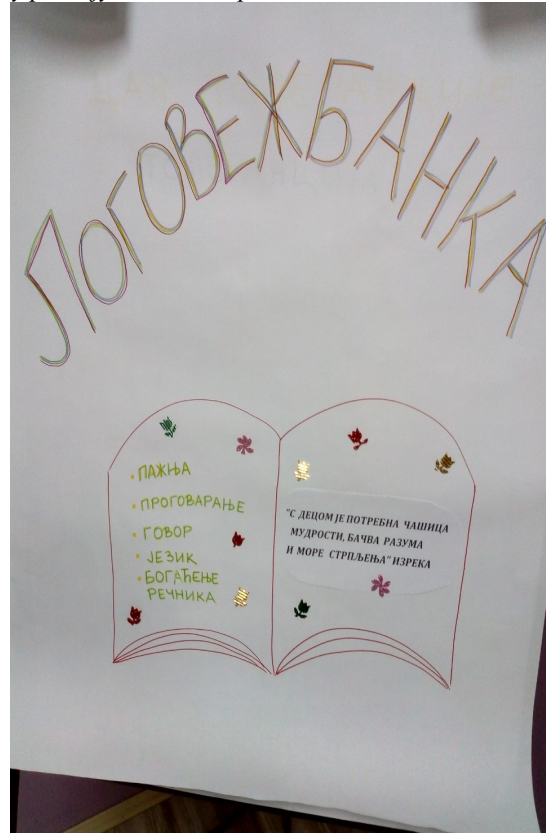 ЛОГОВЕЖБАНКА
• ПАЖЊА
• ПРОГОВАРАЊЕ
• ГОВОР
• ЈЕЗИК
• БОГАЋЕЊЕ
РЕЧНИКА
"С ДЕЦОМ ЈЕ ПОТРЕБНА ЧАШИЦА
МУДРОСТИ, БАЧВА РАЗУМА
И МОРЕ СТРПЉЕЊА" ИЗРЕКА